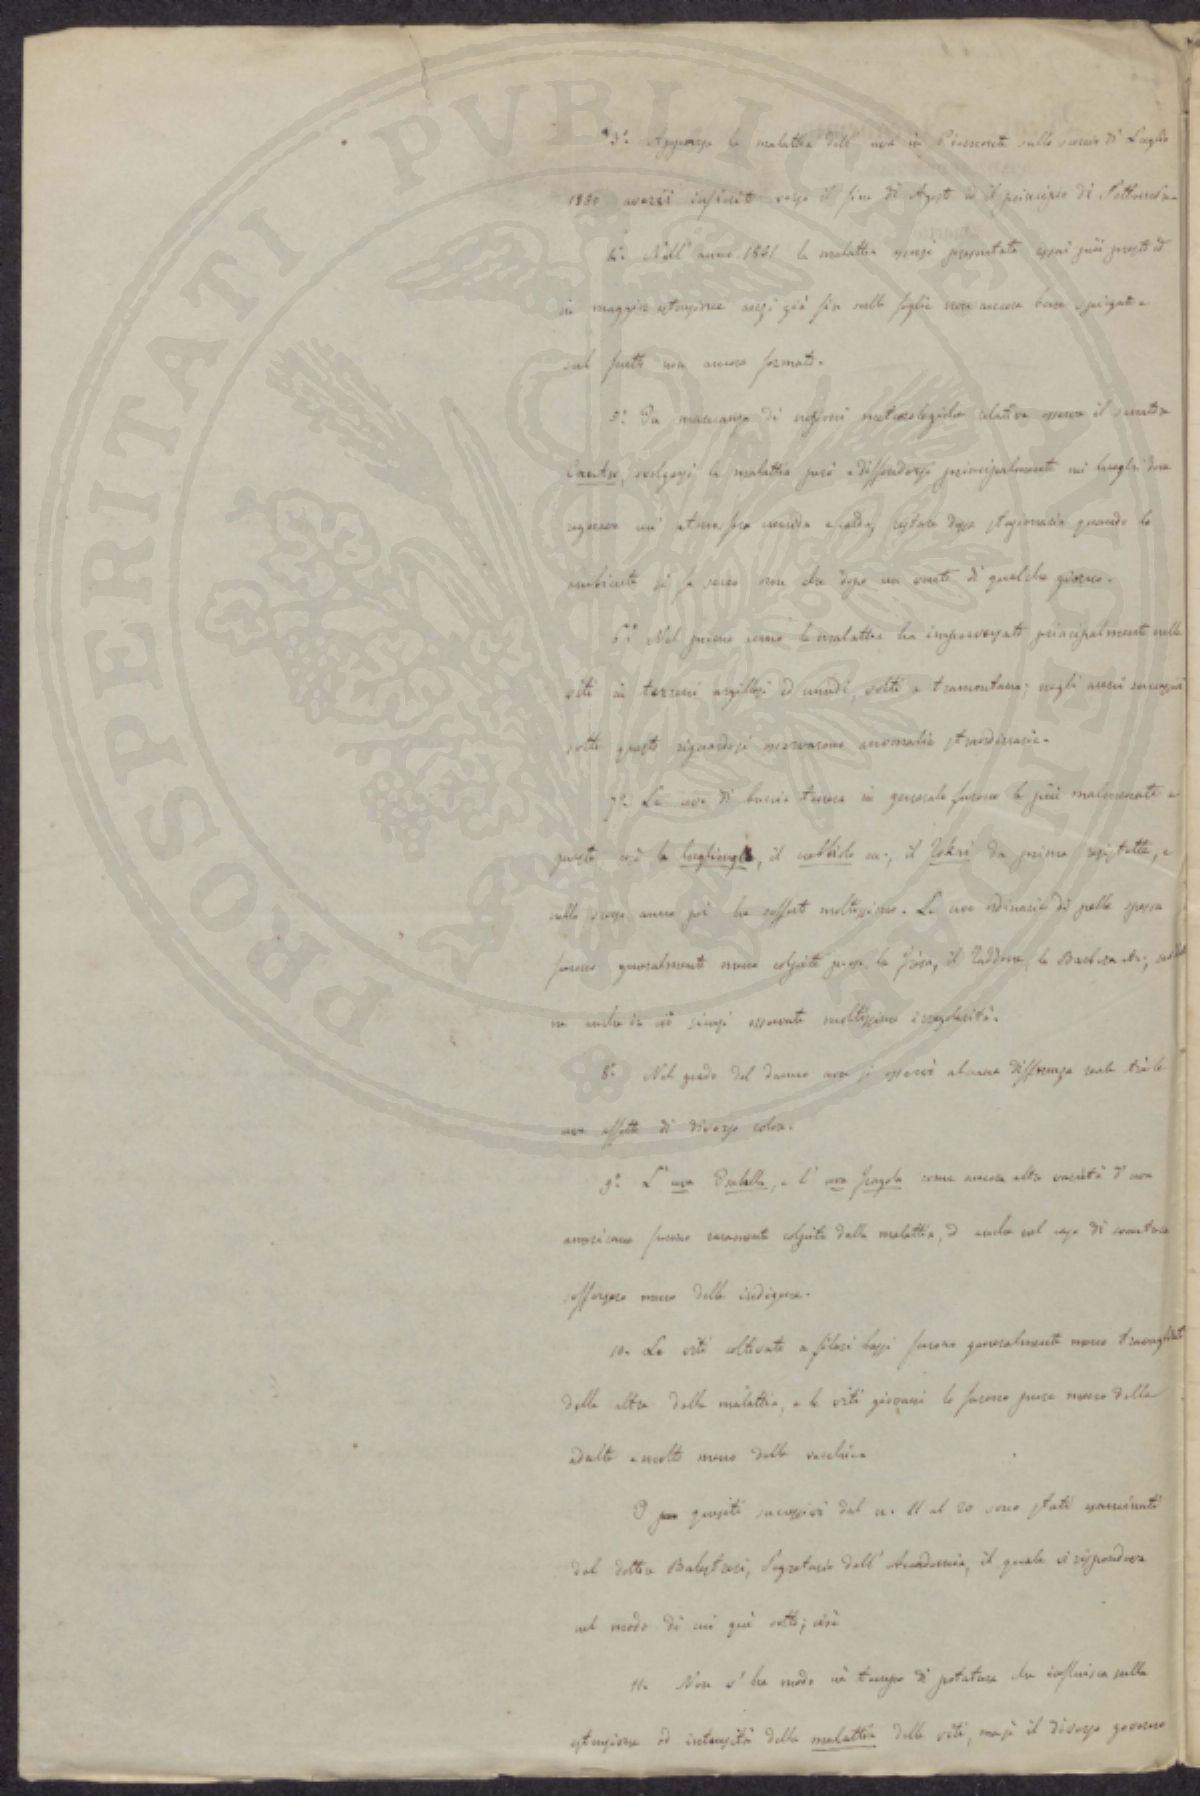 3.° Apparsa la malattia dell' uva in Piemonte sullo scorcio di Luglio
1850 verso il fine di Agosto ed il principio di Settembre
4.° Nell' anno 1851 la malattia presentata assai più presto ed
in maggior estensione già fin nelle foglie non ancora bene spiegate e
sul frutto non ancora formato.
5.° In mancanza di nozioni meteorologiche relative il senatore
Cantù, la malattia però e diffondersi principalmente nei luoghi dove
un' atmosfera umida e calda, restare stazionaria quando lo
ambiente si fa secco non che dopo un vento di qualche giorno.
6.° Nel primo anno la malattia ha imperversato principalmente nelle
viti in terreni argillosi ed umidi, volti a tramontana; negli anni successivi
sotto questo riguardo si osservarono anomalie straordinarie.
7.° Le uve di buccia tenera in generale furono le più malmenate e
la lugliatica, il nebbiolo ec., il Tokai da prima resistette, e
nello scorso anno poi ha sofferto moltissimo. Le uve ordinarie di pelle spessa
furono generalmente meno colpite p. es. la frisa, il Vaddone, la Barbera etc.,
ma anche in ciò si osservate moltissime irregolarità.
8.° Nel grado del danno non si osservò alcuna differenza reale tra le
uve affette di diverso colore.
9.° L' uva Isabella, e l' uva fragola come ancora altre varietà d' uva
americana furono raramente colpite dalla malattia, ed anche nel caso di contrarla
soffersero meno delle indigene.
10. Le viti coltivate a filari bassi furono generalmente meno travagliate
delle altre dalla malattia, e le viti giovani lo furono pure meno delle
adulte e molto meno delle vecchie.
I quesiti successivi dal n. 11 al 20 sono stati esaminati
dal dottor Balestreri, Segretario dell' Accademia, il quale vi rispondeva
nel modo di cui qui sotto; cioè
11. Non v' ha modo nè tempo di potatura che influisca sulla
estensione od intensità della malattia delle viti, ma sì il diverso governo